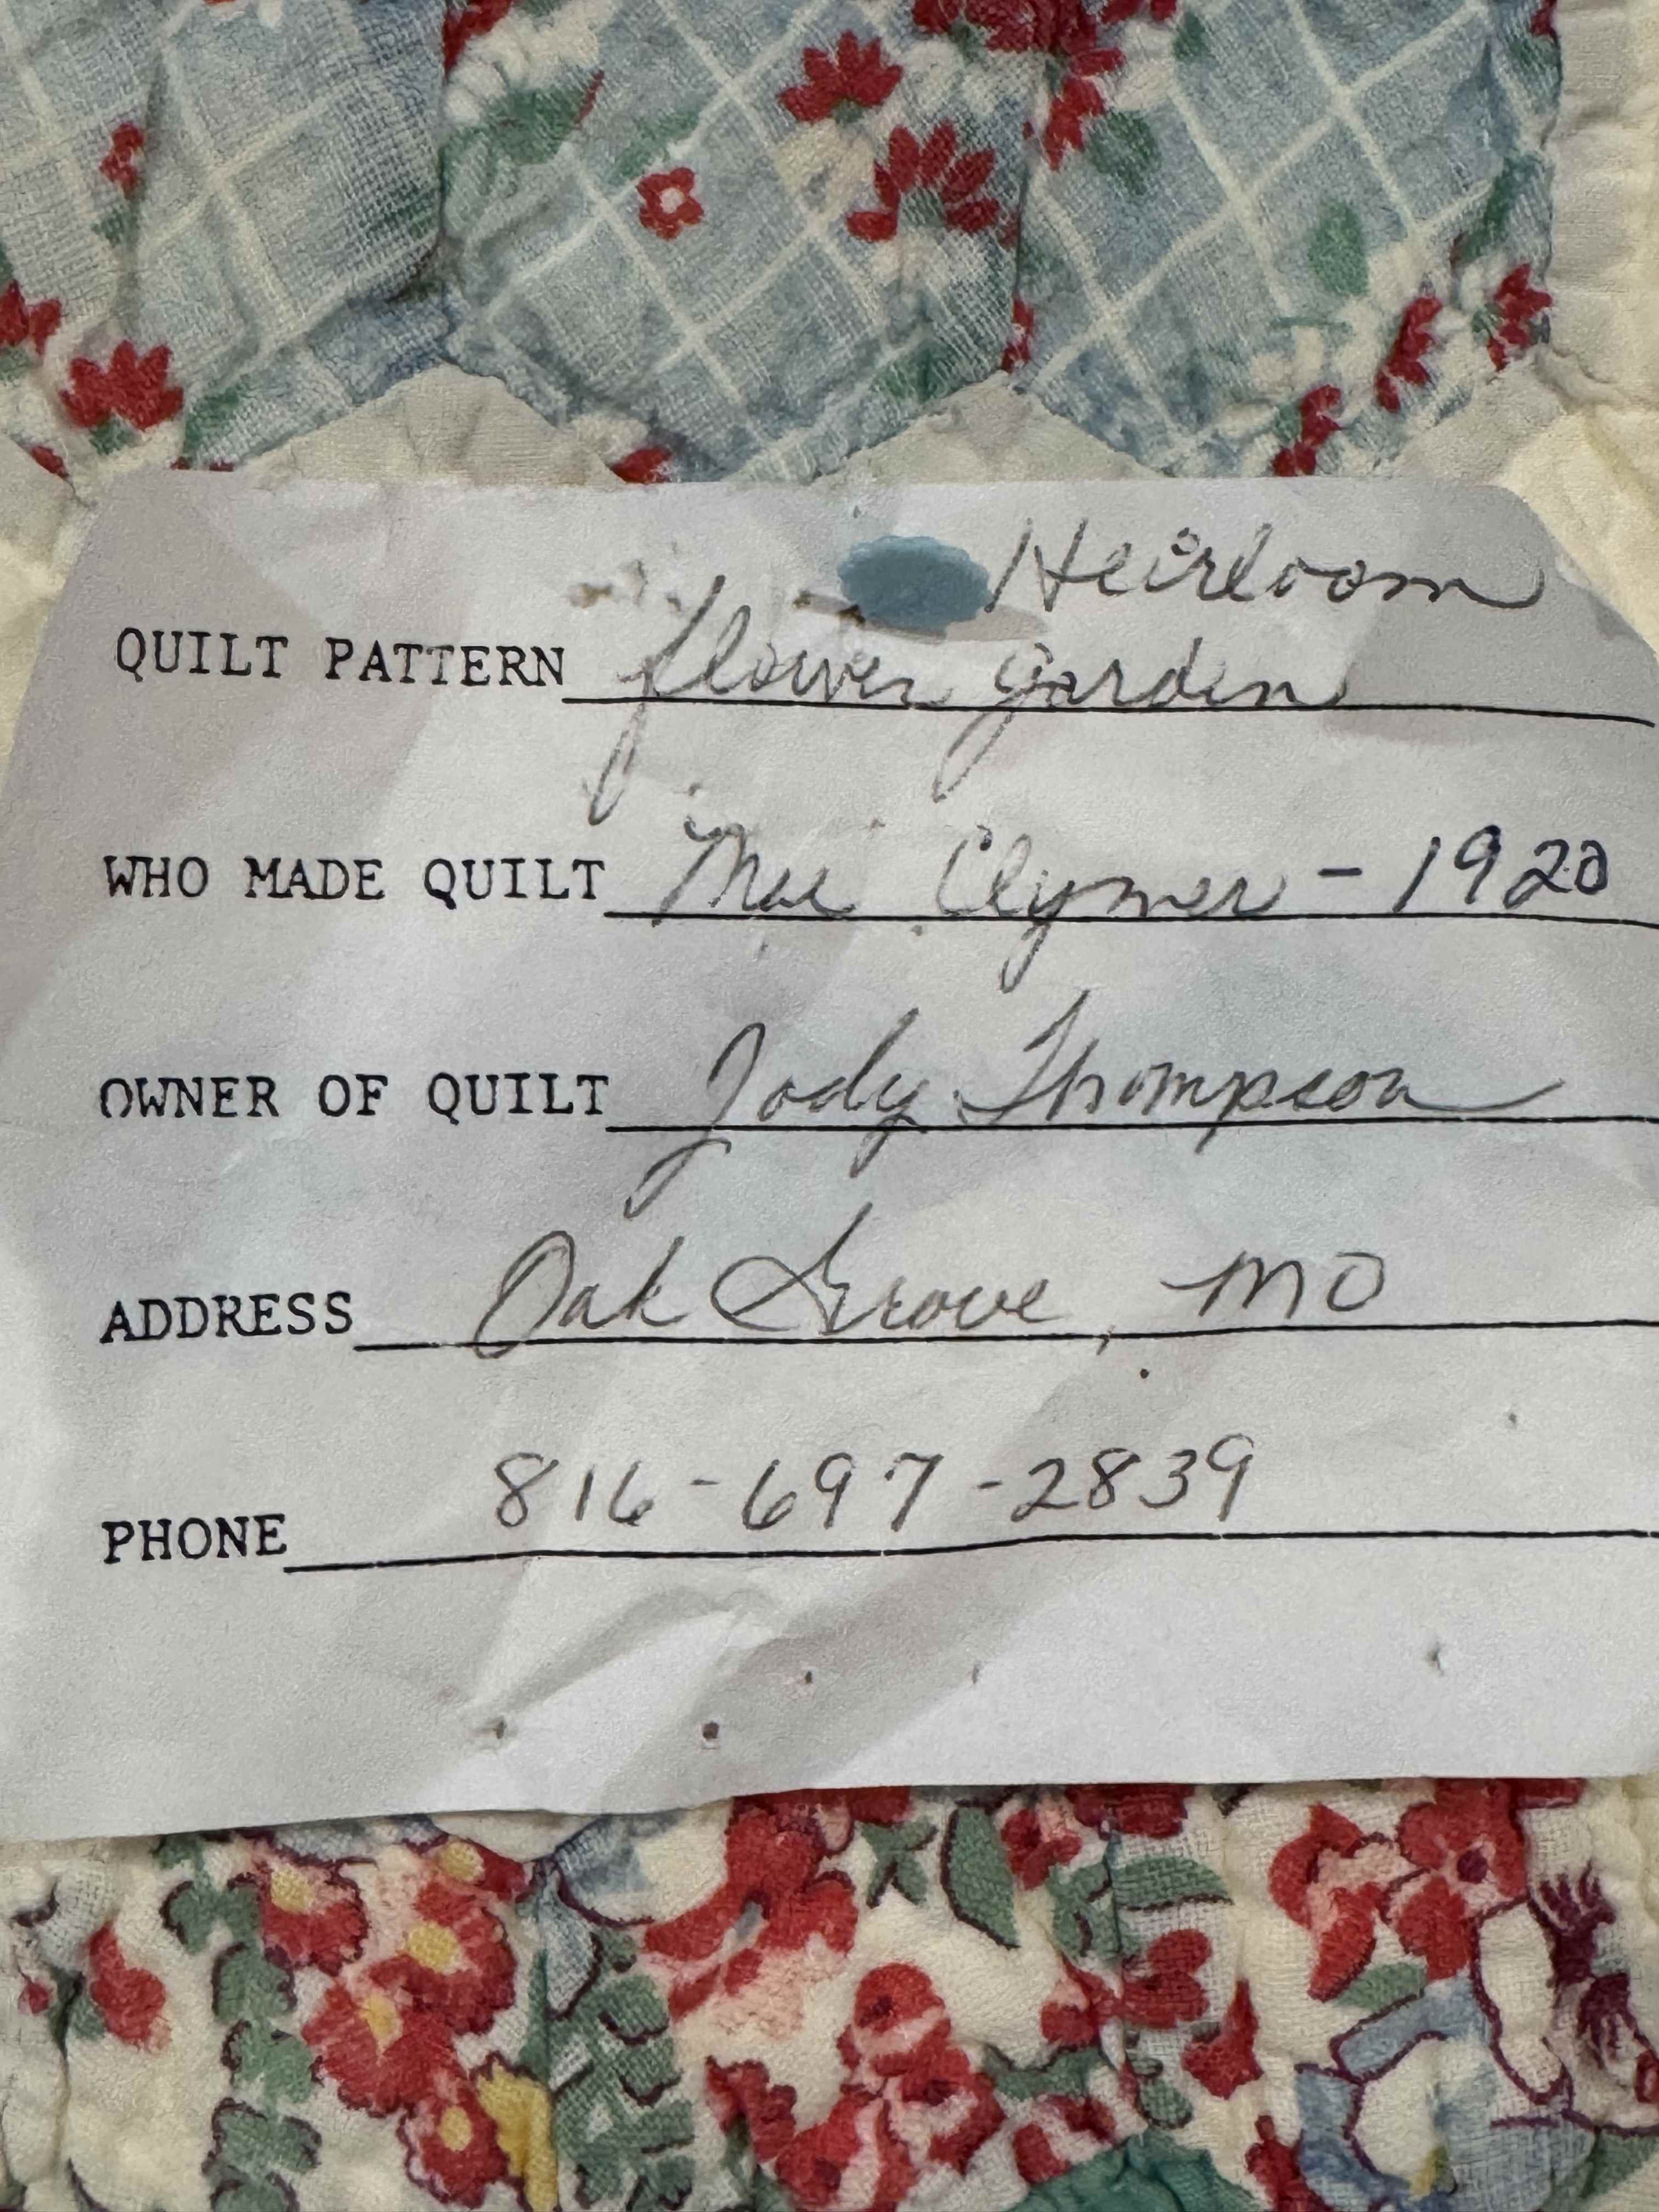 Heirloom
QUILT PATTERN flower garden
WHO MADE QUILT Mae Clymer - 1920
OWNER OF QUILT Jody Thompson
ADDRESS Oak Grove, MO
PHONE 816-697-2839